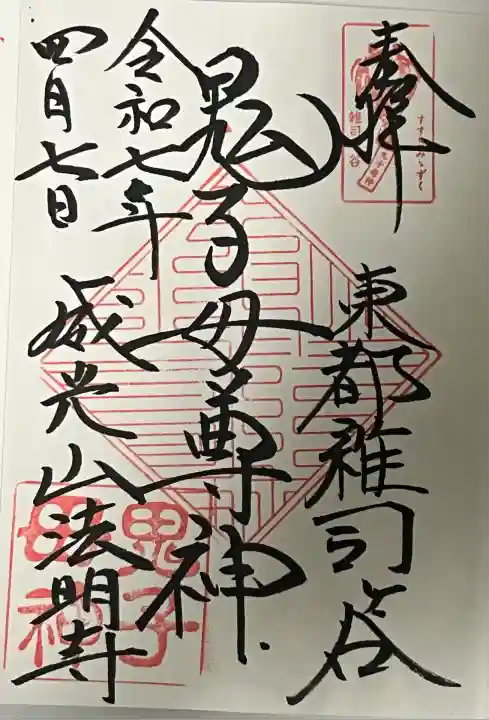 奉拝
東都雑司ヶ谷
鬼子母尊神
令和七年
四月七日
威光山法明寺
すすきみゝずく
雑司谷
鬼子母神